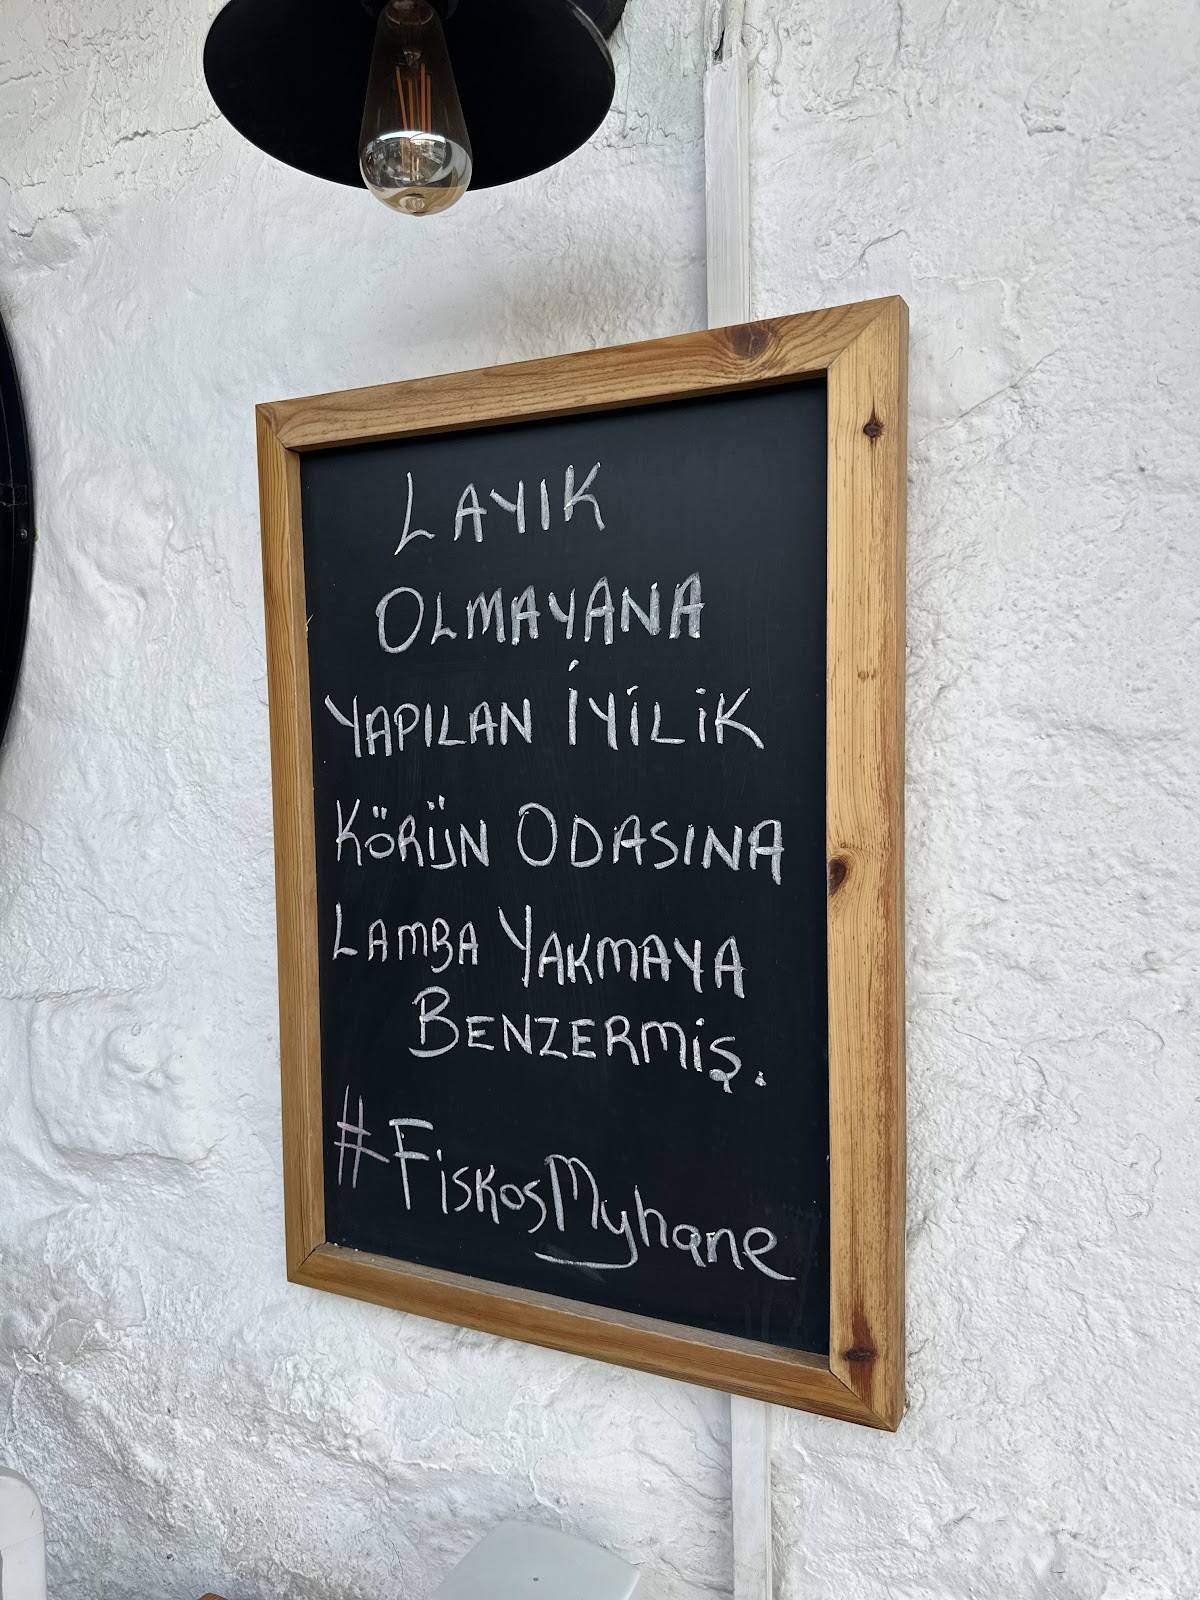 LAYIK
OLMAYANA
YAPILAN İYİLİK
KÖRÜN ODASINA
LAMBA YAKMAYA
BENZERMİŞ.
#FiskosMyhane